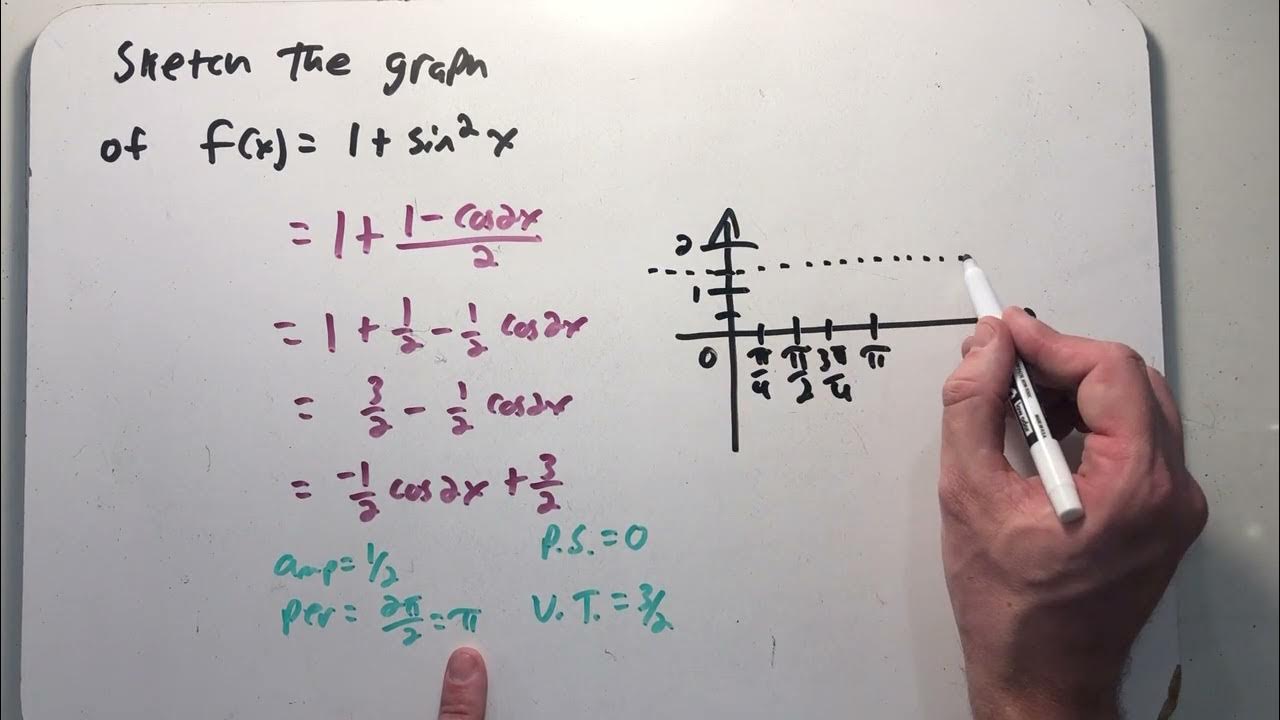 Sketch the graph
of f(x) = 1 + sin² x
= 1 + (1 - cos2x)/2
= 1 + 1/2 - 1/2 cos2x
= 3/2 - 1/2 cos2x
= -1/2 cos2x + 3/2
amp = 1/2
per = 2π/2 = π
P.S. = 0
V.T. = 3/2
2
1
0 π/4 π/2 3π/4 π